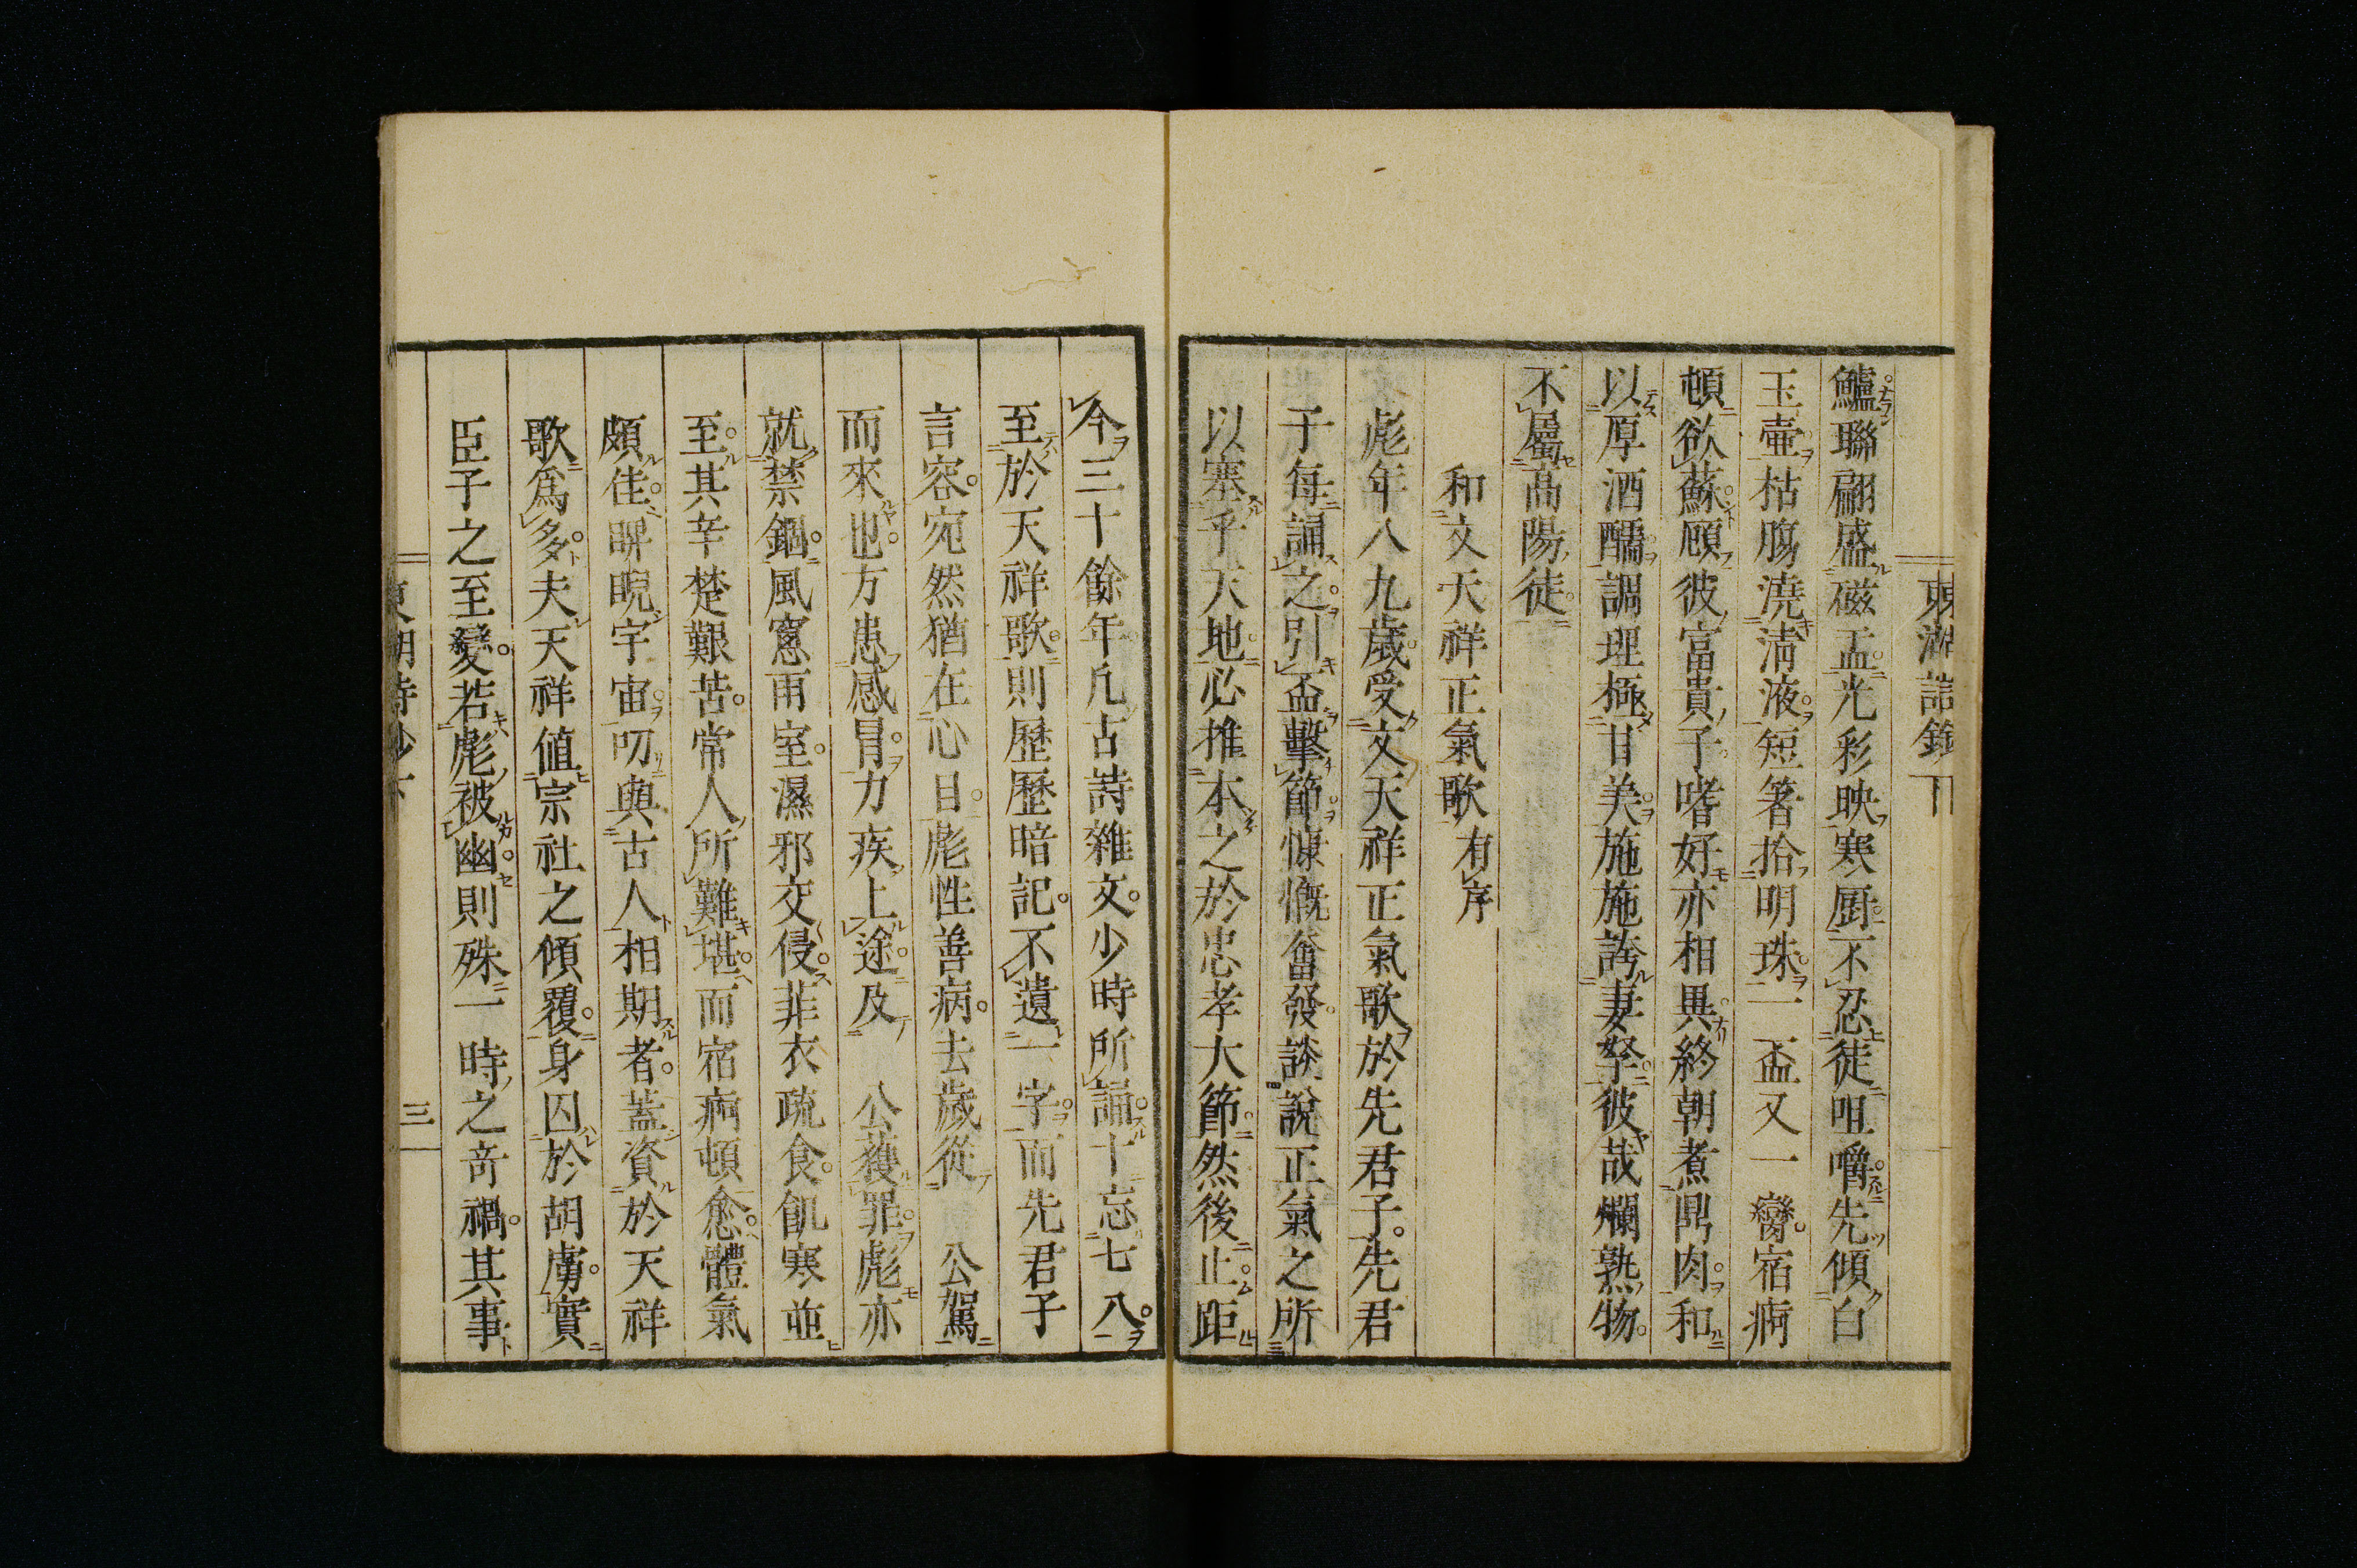 鱸聯翩盛磁盂光彩映寒厨不忍徒咀嚼先傾白
玉壷枯膓澆淸液短箸拾明珠一盃又一臠宿痾
頓欲蘇顧彼富貴子嗜好亦相異終朝煮鼎肉和
以厚酒醹調理極甘美施施誇妻孥彼哉爛熟物
不屬髙陽徒
和文天祥正氣歌有序
彪年八九歲受文天祥正氣歌於先君子先君
子每誦之引盃擊節慷慨奮發談說正氣之所
以塞乎天地必推本之於忠孝大節然後止距
今三十餘年凡古詩雜文少時所誦十忘七八
至於天祥歌則歷歷暗記不遺一字而先君子
言容宛然猶在心目彪性善病去歲從 公駕
而來也方患感冒力疾上途及 公獲罪彪亦
就禁錮風窻雨室濕邪交侵菲衣疏食飢寒並
至其辛楚艱苦常人所難堪而宿痾頓愈體氣
頗佳睥睨宇宙叨與古人相期者蓋資於天祥
歌爲多夫天祥値宗社之傾覆身囚於胡虜實
臣子之至變若彪被幽則殊一時之奇禍其事
三